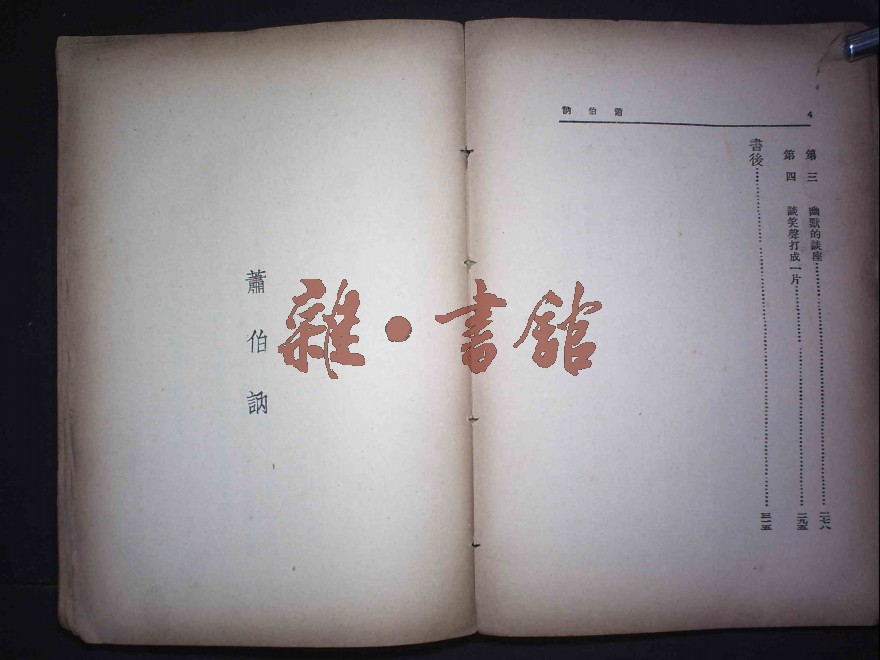 蕭伯訥
4
第三 幽默的談座……二七八
第四 談笑聲打成一片……二九五
書後……三一五
蕭伯訥
雜•書舘